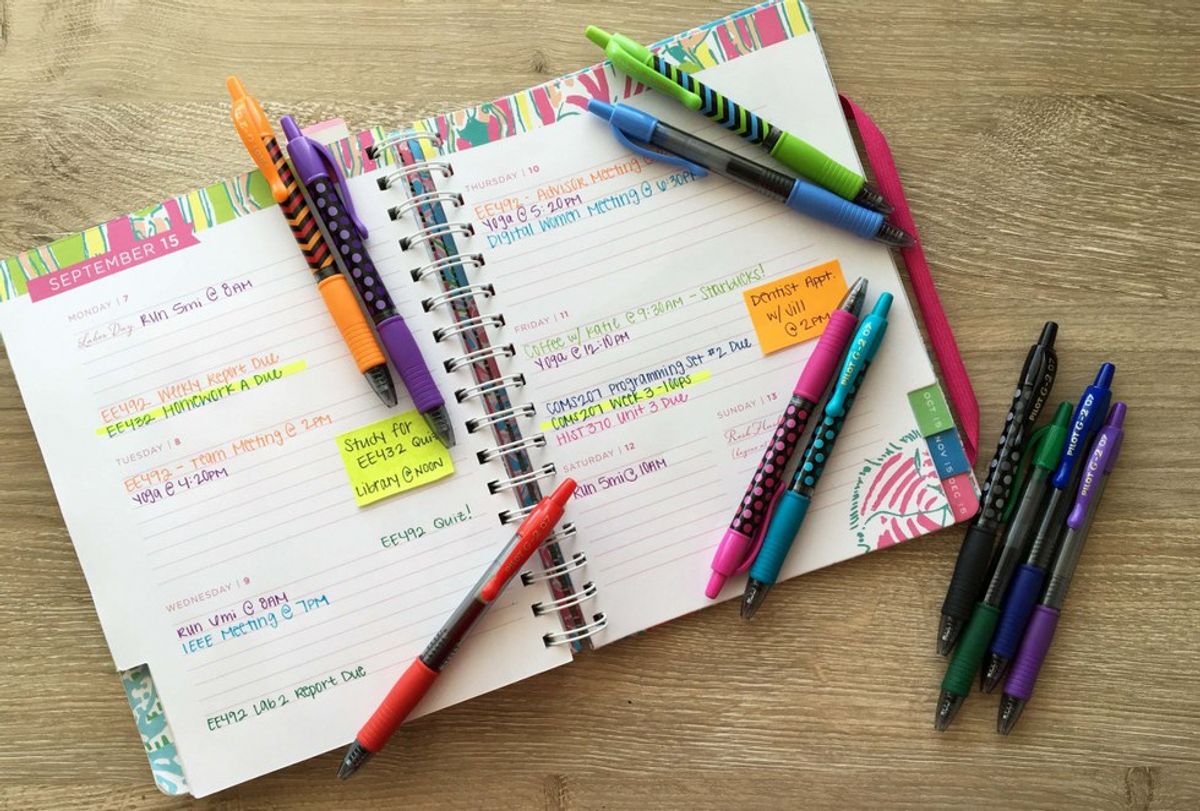 SEPTEMBER 15
MONDAY | 7
Labor Day
Run 5mi @ 8AM
EE492 Weekly Report Due
EE432 Homework A Due
TUESDAY | 8
EE492 - Team Meeting @ 2PM
Yoga @ 4:20PM
Study for
EE432 Quiz
Library @ Noon
EE492 Quiz!
WEDNESDAY | 9
Run 4mi @ 8AM
IEEE Meeting @ 7PM
EE492 Lab 2 Report Due
THURSDAY | 10
EE492 - Advisor Meeting @
Yoga @ 5:20PM
Digital Women Meeting @ 6:30PM
FRIDAY | 11
Coffee w/ Katie @ 9:30AM - Starbucks!
Yoga @ 12:10PM
COMS207 Programming Set #2 Due
COMS207 Week 3 - 100ps
HIST370 Unit 3 Due
Dentist Appt.
w/ Jill
@ 2PM
SATURDAY | 12
Run 5mi @ 10AM
SUNDAY | 13
OCT 15
NOV 15
DEC 15
PILOT G-2 07
PILOT G-2 07
PILOT G-2 07
PILOT G-2 07
PILOT G-2 07